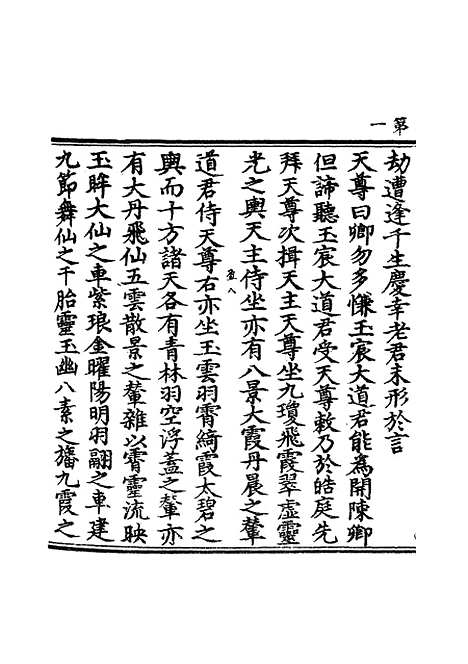 第一
劫遭逢千生慶幸老君未形於言
天尊曰卿勿多慊玉宸大道君能為開陳卿
但諦聽玉宸大道君受天尊敕乃於皓庭先
拜天尊次揖天主天尊坐九瓊飛霞翠虛靈
光之輿天主侍坐亦有八景大霞丹晨之輦
盈八
道君侍天尊右亦坐玉雲羽霄綺霞太碧之
輿而十方諸天各有青林羽空浮蓋之輦亦
有大丹飛仙五雲散景之輦雜以霄靈流映
玉眸大仙之車紫琅金曜陽明羽翮之車建
九節舞仙之干胎靈玉幽八素之旛九霞之